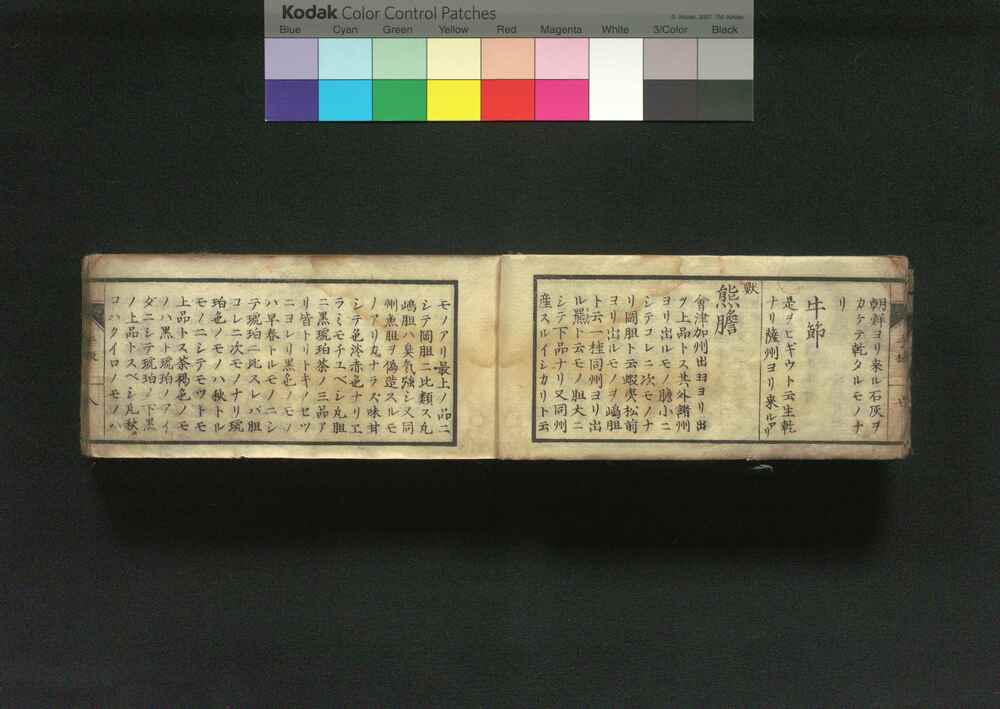 Kodak Color Control Patches
Blue Cyan Green Yellow Red Magenta White 3/Color Black
朝鮮ヨリ来ル石灰ヲ
カケテ乾タルモノナ
リ
牛節
是ヲヒギウト云生乾
ナリ薩州ヨリ来ルアリ
獣
熊膽
會津加州出羽ヨリ出
ツ上品トス其外諸州
ヨリ出ルモノ膽小ニ
シテコレニ次モノナ
リ岡胆ト云蝦夷松前
ヨリ出ルモノヲ嶋胆
ト云一種同州ヨリ出
ル羆ト云モノ胆大ニ
シテ下品ナリ又同州
産スルイシカリト云
モノアリ最上ノ品ニ
シテ岡胆ニ比類ス丸
嶋胆ハ臭氣強シ又同
州魚胆ヲ偽造スルモ
ノアリ丸ナラズ味甘
シテ色淡赤色ナリエ
ラミモチユベシ丸胆
ニ黒琥珀茶ノ三品ア
リ皆トリトキノセツ
ニヨレリ黒色ノモノ
ハ早春トルモノニシ
テ琥珀ニ比スレバ胆
コレニ次モノナリ琥
珀色ノモノハ秋トル
モノニシテモウトモ
上品トス茶褐色ノモ
ノハ黒ト琥珀ノアイ
ダニシテ琥珀ノ下黒
ノ上品トスベシ丸秋
コハクイロノモノハ